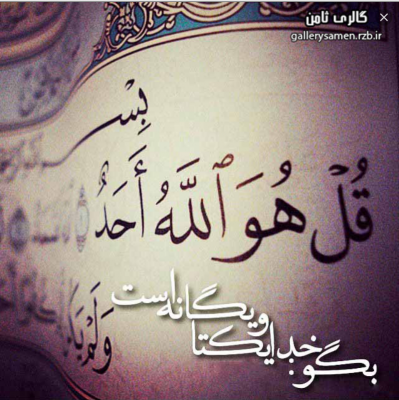 گالری ثامن
gallerysamen.rzb.ir
بِسْ
قُلْ هُوَ ٱللَّهُ أَحَدٌ ١
وَلَمْ
بگو: خدا یکتا
و یگانه است